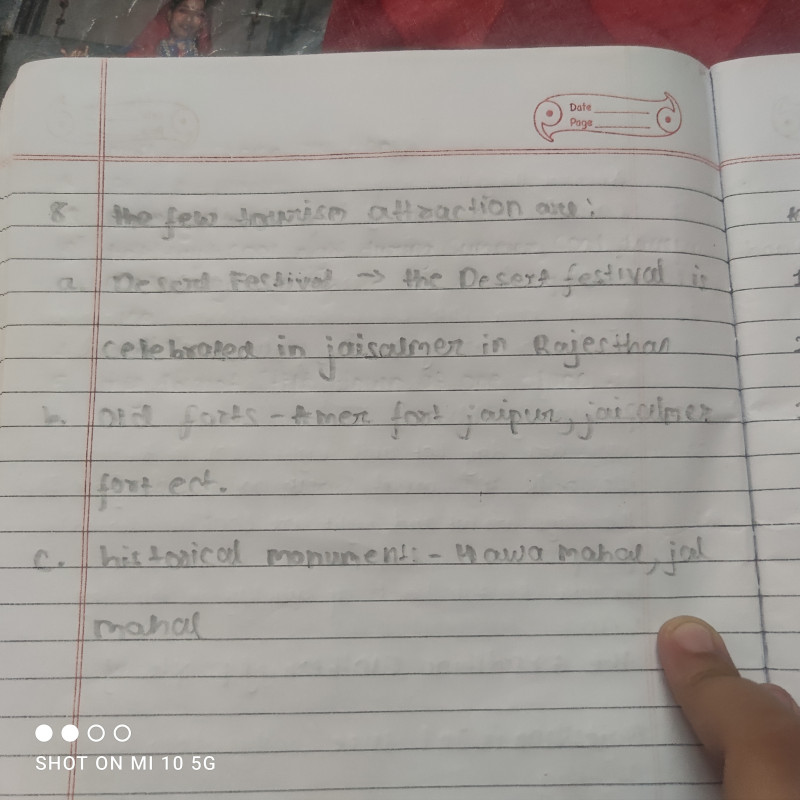 Date
Page
8 the few tourism attraction are:
a. Desert Festival → the Desert festival is
celebrated in jaisalmer in Rajesthan
b. old forts - Amer fort jaipur, jaisalmer
fort ect.
c. historical monument:- Hawa mahal, jal
mahal
SHOT ON MI 10 5G